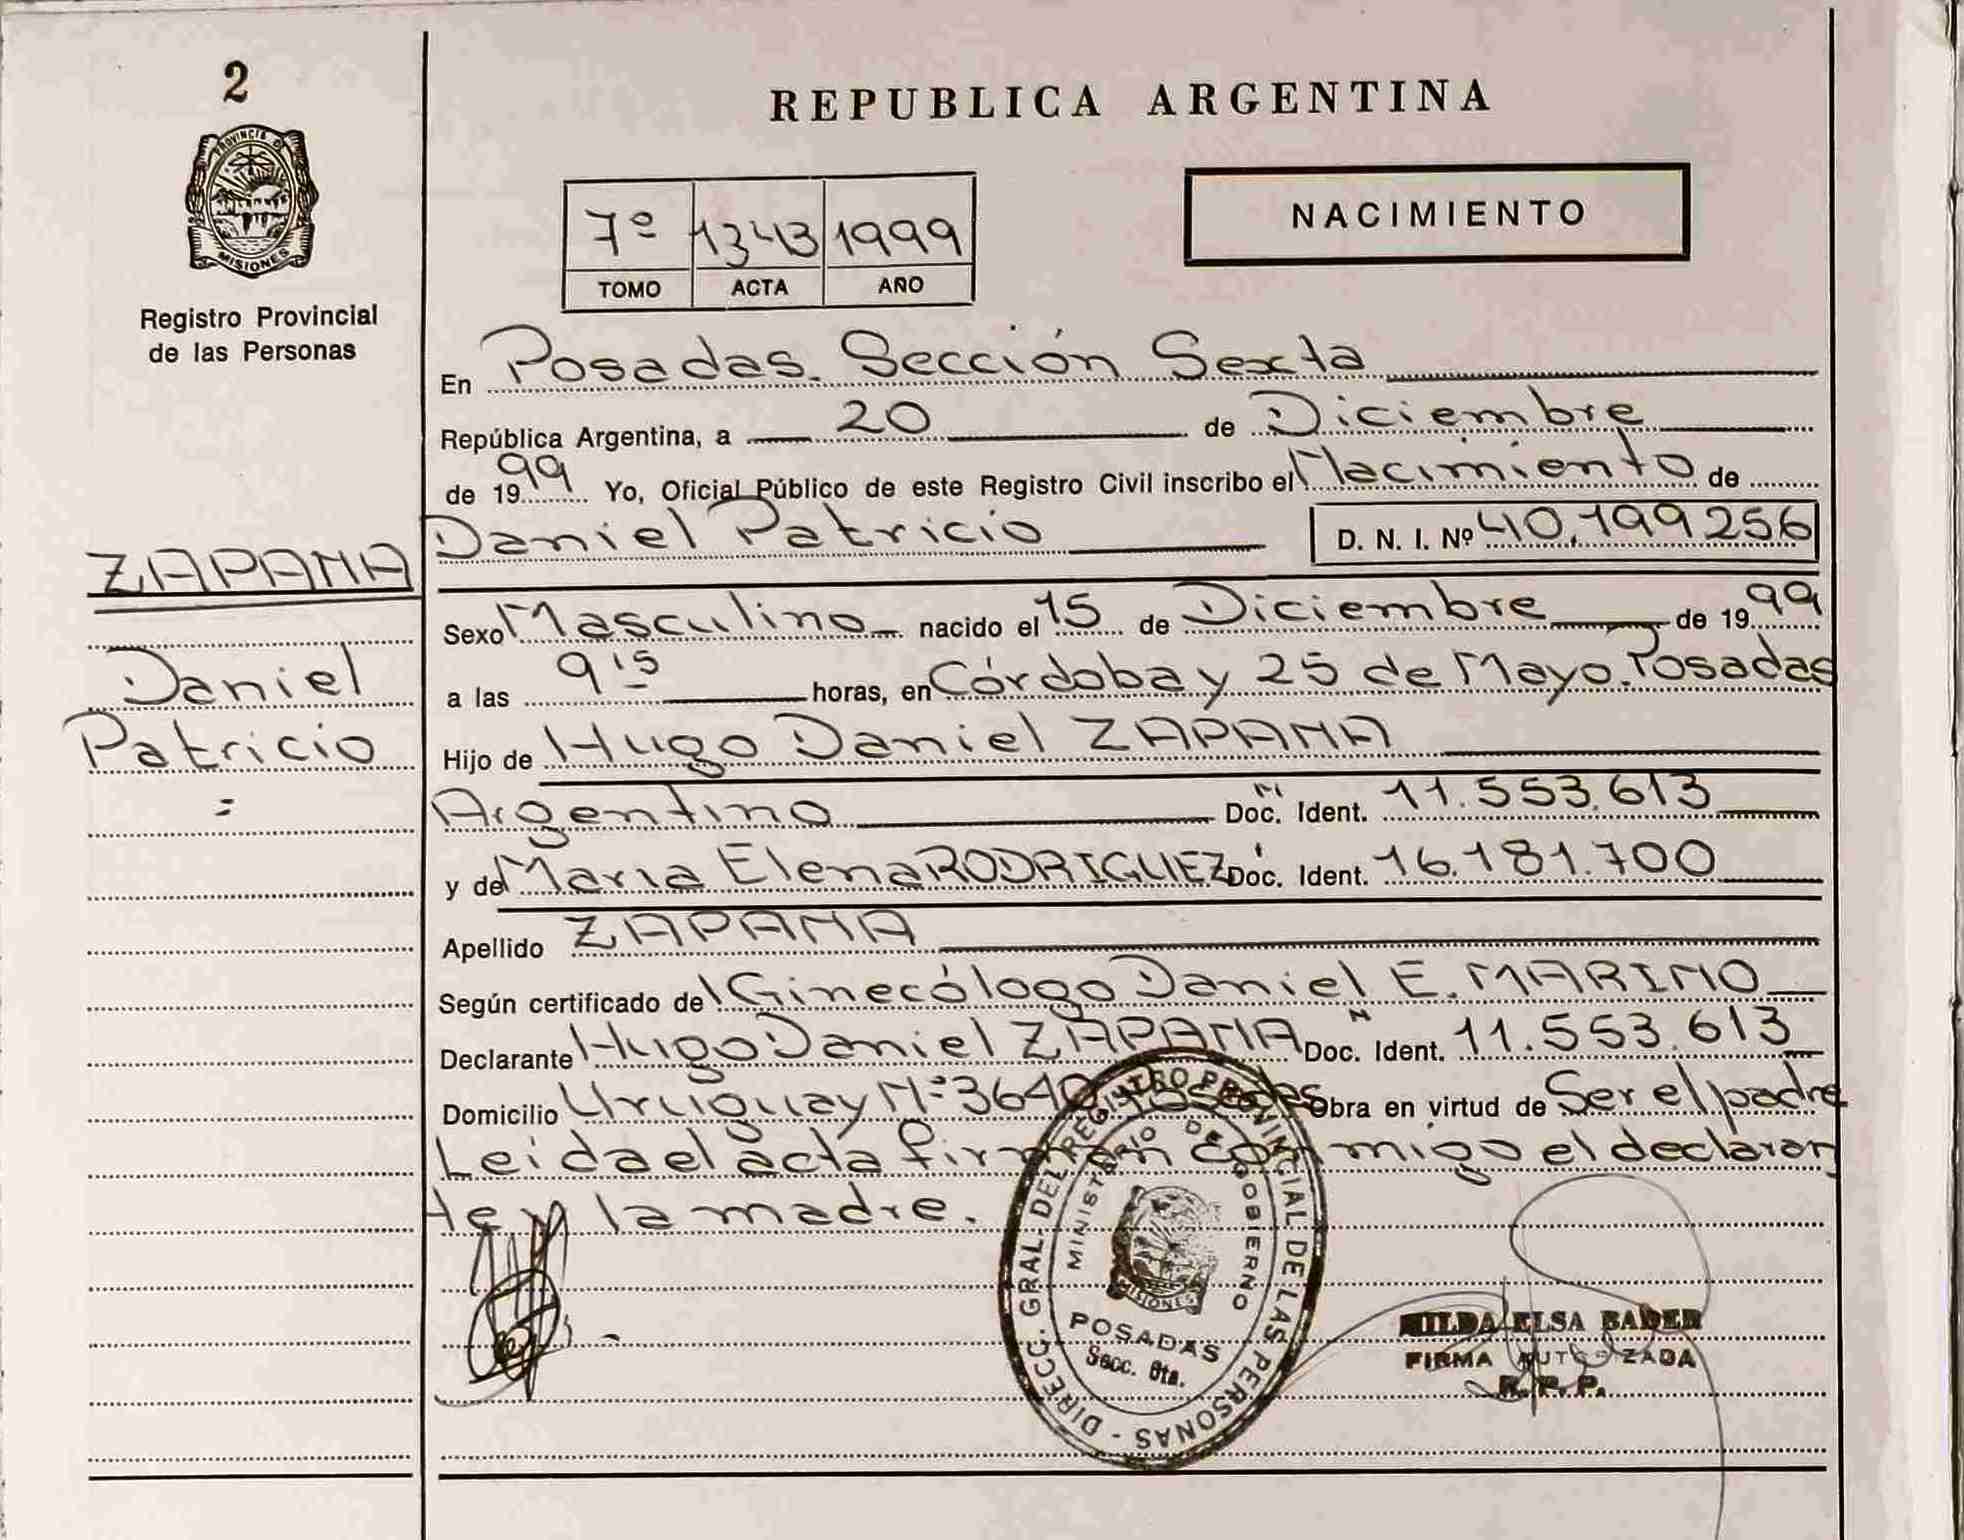 2
PROVINCIA DE
MISIONES
Registro Provincial
de las Personas
ZAPANA
Daniel
Patricio
=
REPUBLICA ARGENTINA
7º 1343 1999
TOMO ACTA AÑO
NACIMIENTO
En Posadas. Sección Sexta
República Argentina, a 20 de Diciembre
de 1999 Yo, Oficial Público de este Registro Civil inscribo el Nacimiento de
Daniel Patricio D. N. I. Nº 40.199256
Sexo Masculino nacido el 15 de Diciembre de 1999
a las 9 15 horas, en Córdoba y 25 de Mayo. Posadas
Hijo de Hugo Daniel ZAPANA
Argentino Doc. Ident. 11.553.613
y de Maria Elena RODRIGUEZ Doc. Ident. 16.181.700
Apellido ZAPANA
Según certificado del Ginecólogo Daniel E. MARINO
Declarante Hugo Daniel ZAPANA Doc. Ident. 11.553.613
Domicilio Uruguay Nº 3640 Posadas Obra en virtud de Ser el padre
Leida el acta firman conmigo el declaran
te y la madre.
DIRECC. GRAL. DEL REGISTRO PROVINCIAL DE LAS PERSONAS -
MINISTERIO DE GOBIERNO
MISIONES
POSADAS
Secc. 6ta.
HILDA ELSA BADER
FIRMA AUTORIZADA
R. P. P.